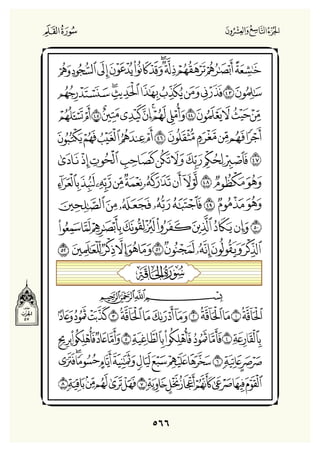 الجُزْءُ التَّاسِعُ وَالعِشْرُونَ
سُورَةُ القَلَمِ
خَٰشِعَةً أَبْصَٰرُهُمْ تَرْهَقُهُمْ ذِلَّةٌ ۖ وَقَدْ كَانُوا۟ يُدْعَوْنَ إِلَى ٱلسُّجُودِ وَهُمْ
سَٰلِمُونَ ٤٣ فَذَرْنِى وَمَن يُكَذِّبُ بِهَٰذَا ٱلْحَدِيثِ ۖ سَنَسْتَدْرِجُهُم
مِّنْ حَيْثُ لَا يَعْلَمُونَ ٤٤ وَأُمْلِى لَهُمْ ۚ إِنَّ كَيْدِى مَتِينٌ ٤٥ أَمْ تَسْـَٔلُهُمْ
أَجْرًا فَهُم مِّن مَّغْرَمٍ مُّثْقَلُونَ ٤٦ أَمْ عِندَهُمُ ٱلْغَيْبُ فَهُمْ يَكْتُبُونَ
٤٧ فَٱصْبِرْ لِحُكْمِ رَبِّكَ وَلَا تَكُن كَصَاحِبِ ٱلْحُوتِ إِذْ نَادَىٰ
وَهُوَ مَكْظُومٌ ٤٨ لَّوْلَآ أَن تَدَٰرَكَهُۥ نِعْمَةٌ مِّن رَّبِّهِۦ لَنُبِذَ بِٱلْعَرَآءِ
وَهُوَ مَذْمُومٌ ٤٩ فَٱجْتَبَٰهُ رَبُّهُۥ فَجَعَلَهُۥ مِنَ ٱلصَّٰلِحِينَ
٥٠ وَإِن يَكَادُ ٱلَّذِينَ كَفَرُوا۟ لَيُزْلِقُونَكَ بِأَبْصَٰرِهِمْ لَمَّا سَمِعُوا۟
ٱلذِّكْرَ وَيَقُولُونَ إِنَّهُۥ لَمَجْنُونٌ ٥١ وَمَا هُوَ إِلَّا ذِكْرٌ لِّلْعَٰلَمِينَ ٥٢
سُورَةُ الحَاقَّةِ
بِسْمِ ٱللَّهِ ٱلرَّحْمَٰنِ ٱلرَّحِيمِ
ٱلْحَآقَّةُ ١ مَا ٱلْحَآقَّةُ ٢ وَمَآ أَدْرَىٰكَ مَا ٱلْحَآقَّةُ ٣ كَذَّبَتْ ثَمُودُ وَعَادٌۢ
بِٱلْقَارِعَةِ ٤ فَأَمَّا ثَمُودُ فَأُهْلِكُوا۟ بِٱلطَّاغِيَةِ ٥ وَأَمَّا عَادٌ فَأُهْلِكُوا۟ بِرِيحٍ
صَرْصَرٍ عَاتِيَةٍ ٦ سَخَّرَهَا عَلَيْهِمْ سَبْعَ لَيَالٍ وَثَمَٰنِيَةَ أَيَّامٍ حُسُومًا فَتَرَى
ٱلْقَوْمَ فِيهَا صَرْعَىٰ كَأَنَّهُمْ أَعْجَازُ نَخْلٍ خَاوِيَةٍ ٧ فَهَلْ تَرَىٰ لَهُم مِّنۢ بَاقِيَةٍ ٨
الحزب
٥٧
٥٦٦